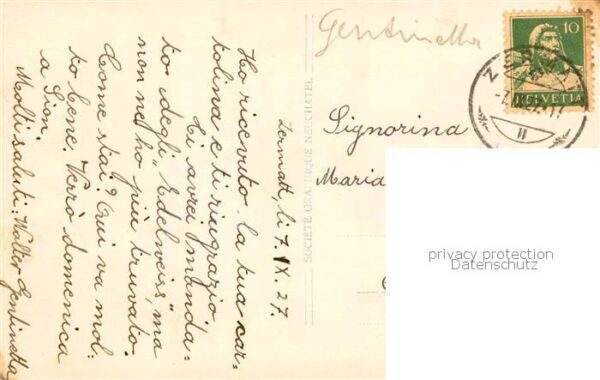 Zermatt, li 7. IX. 27.
Ho ricevuto la tua car-
tolina e ti ringrazio.
Ti avrei manda-
to "degli Edelweiss", ma
non ne ho più truvato.
Come stai? Qui va mol-
to bene. Verrò domenica
a Sion.
Molti saluti: Walter Gentinetta
SOCIÉTÉ GRAPHIQUE NEUCHATEL
Gentinetta
10
HELVETIA
ZERMATT
Signorina
Maria
privacy protection
Datenschutz